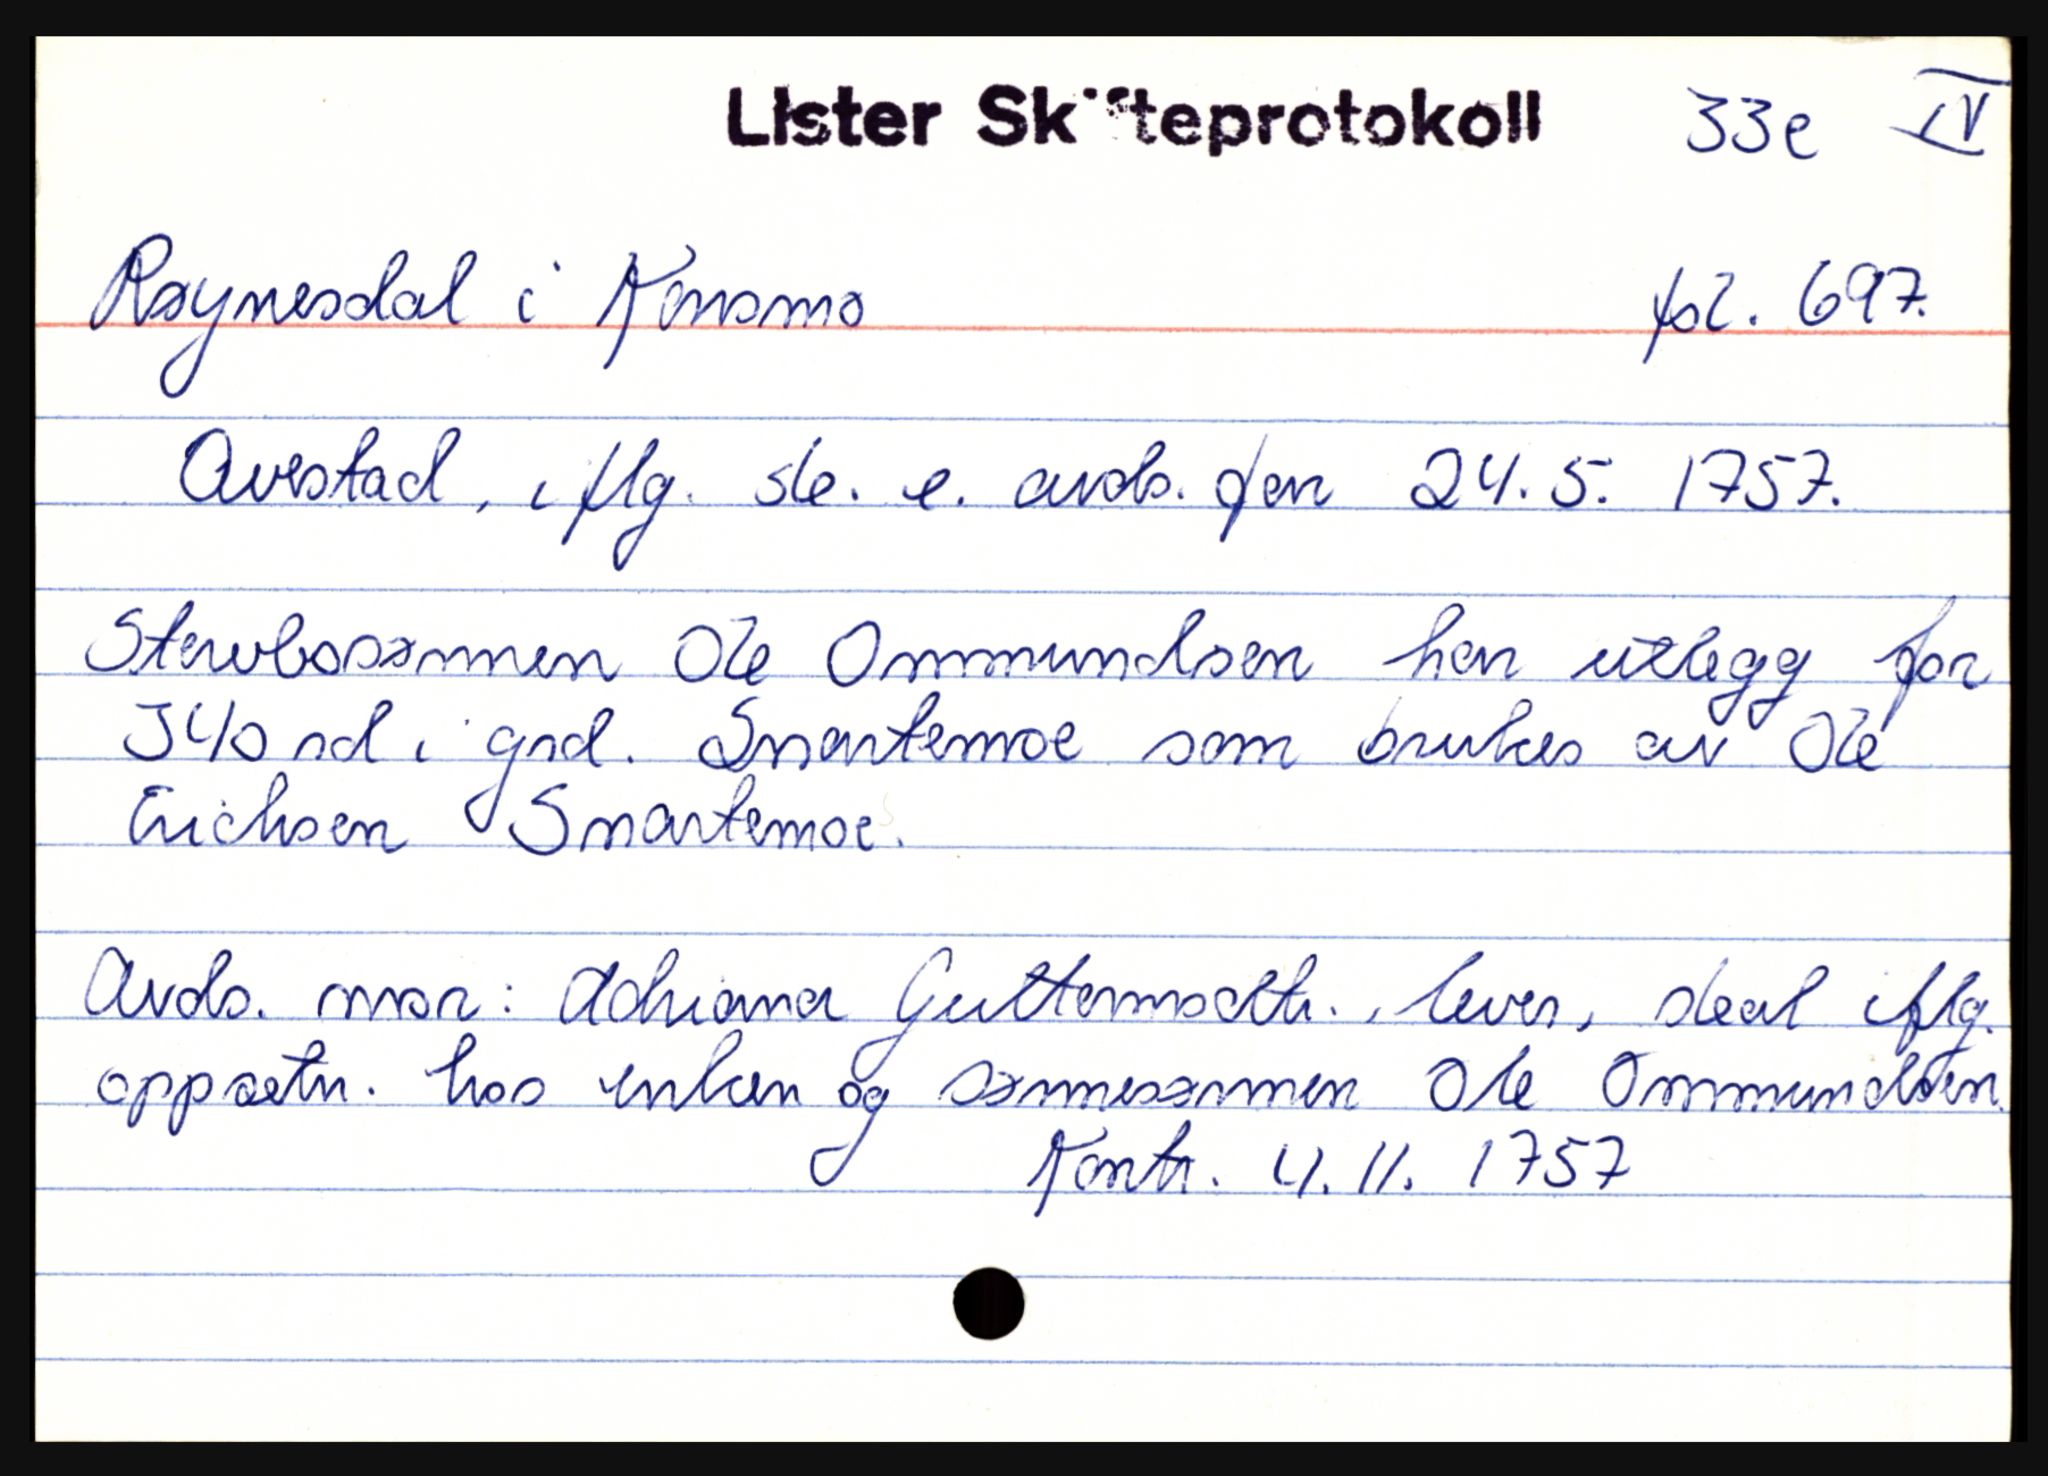 Lister Skifteprotokoll 33e IV
Røynesdal i Konsmo fol. 697.
Avestad, iflg. sk. e. avds. den 24.5. 1757.
Stervbosønnen Ole Ommundsen har utlegg for
J 40 rd i grd. Snartemoe som brukes av Ole
Erichsen Snartemoe.
Avds. mor: Adriana Guttormsdtr., lever, skal iflg.
oppsetn. hos enken og sønnesønnen Ole Ommundsen.
Kontr. 4.11. 1757